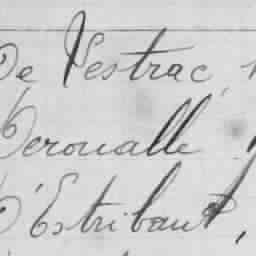 De Vestrac,
Deroualle
D'Estribaut,